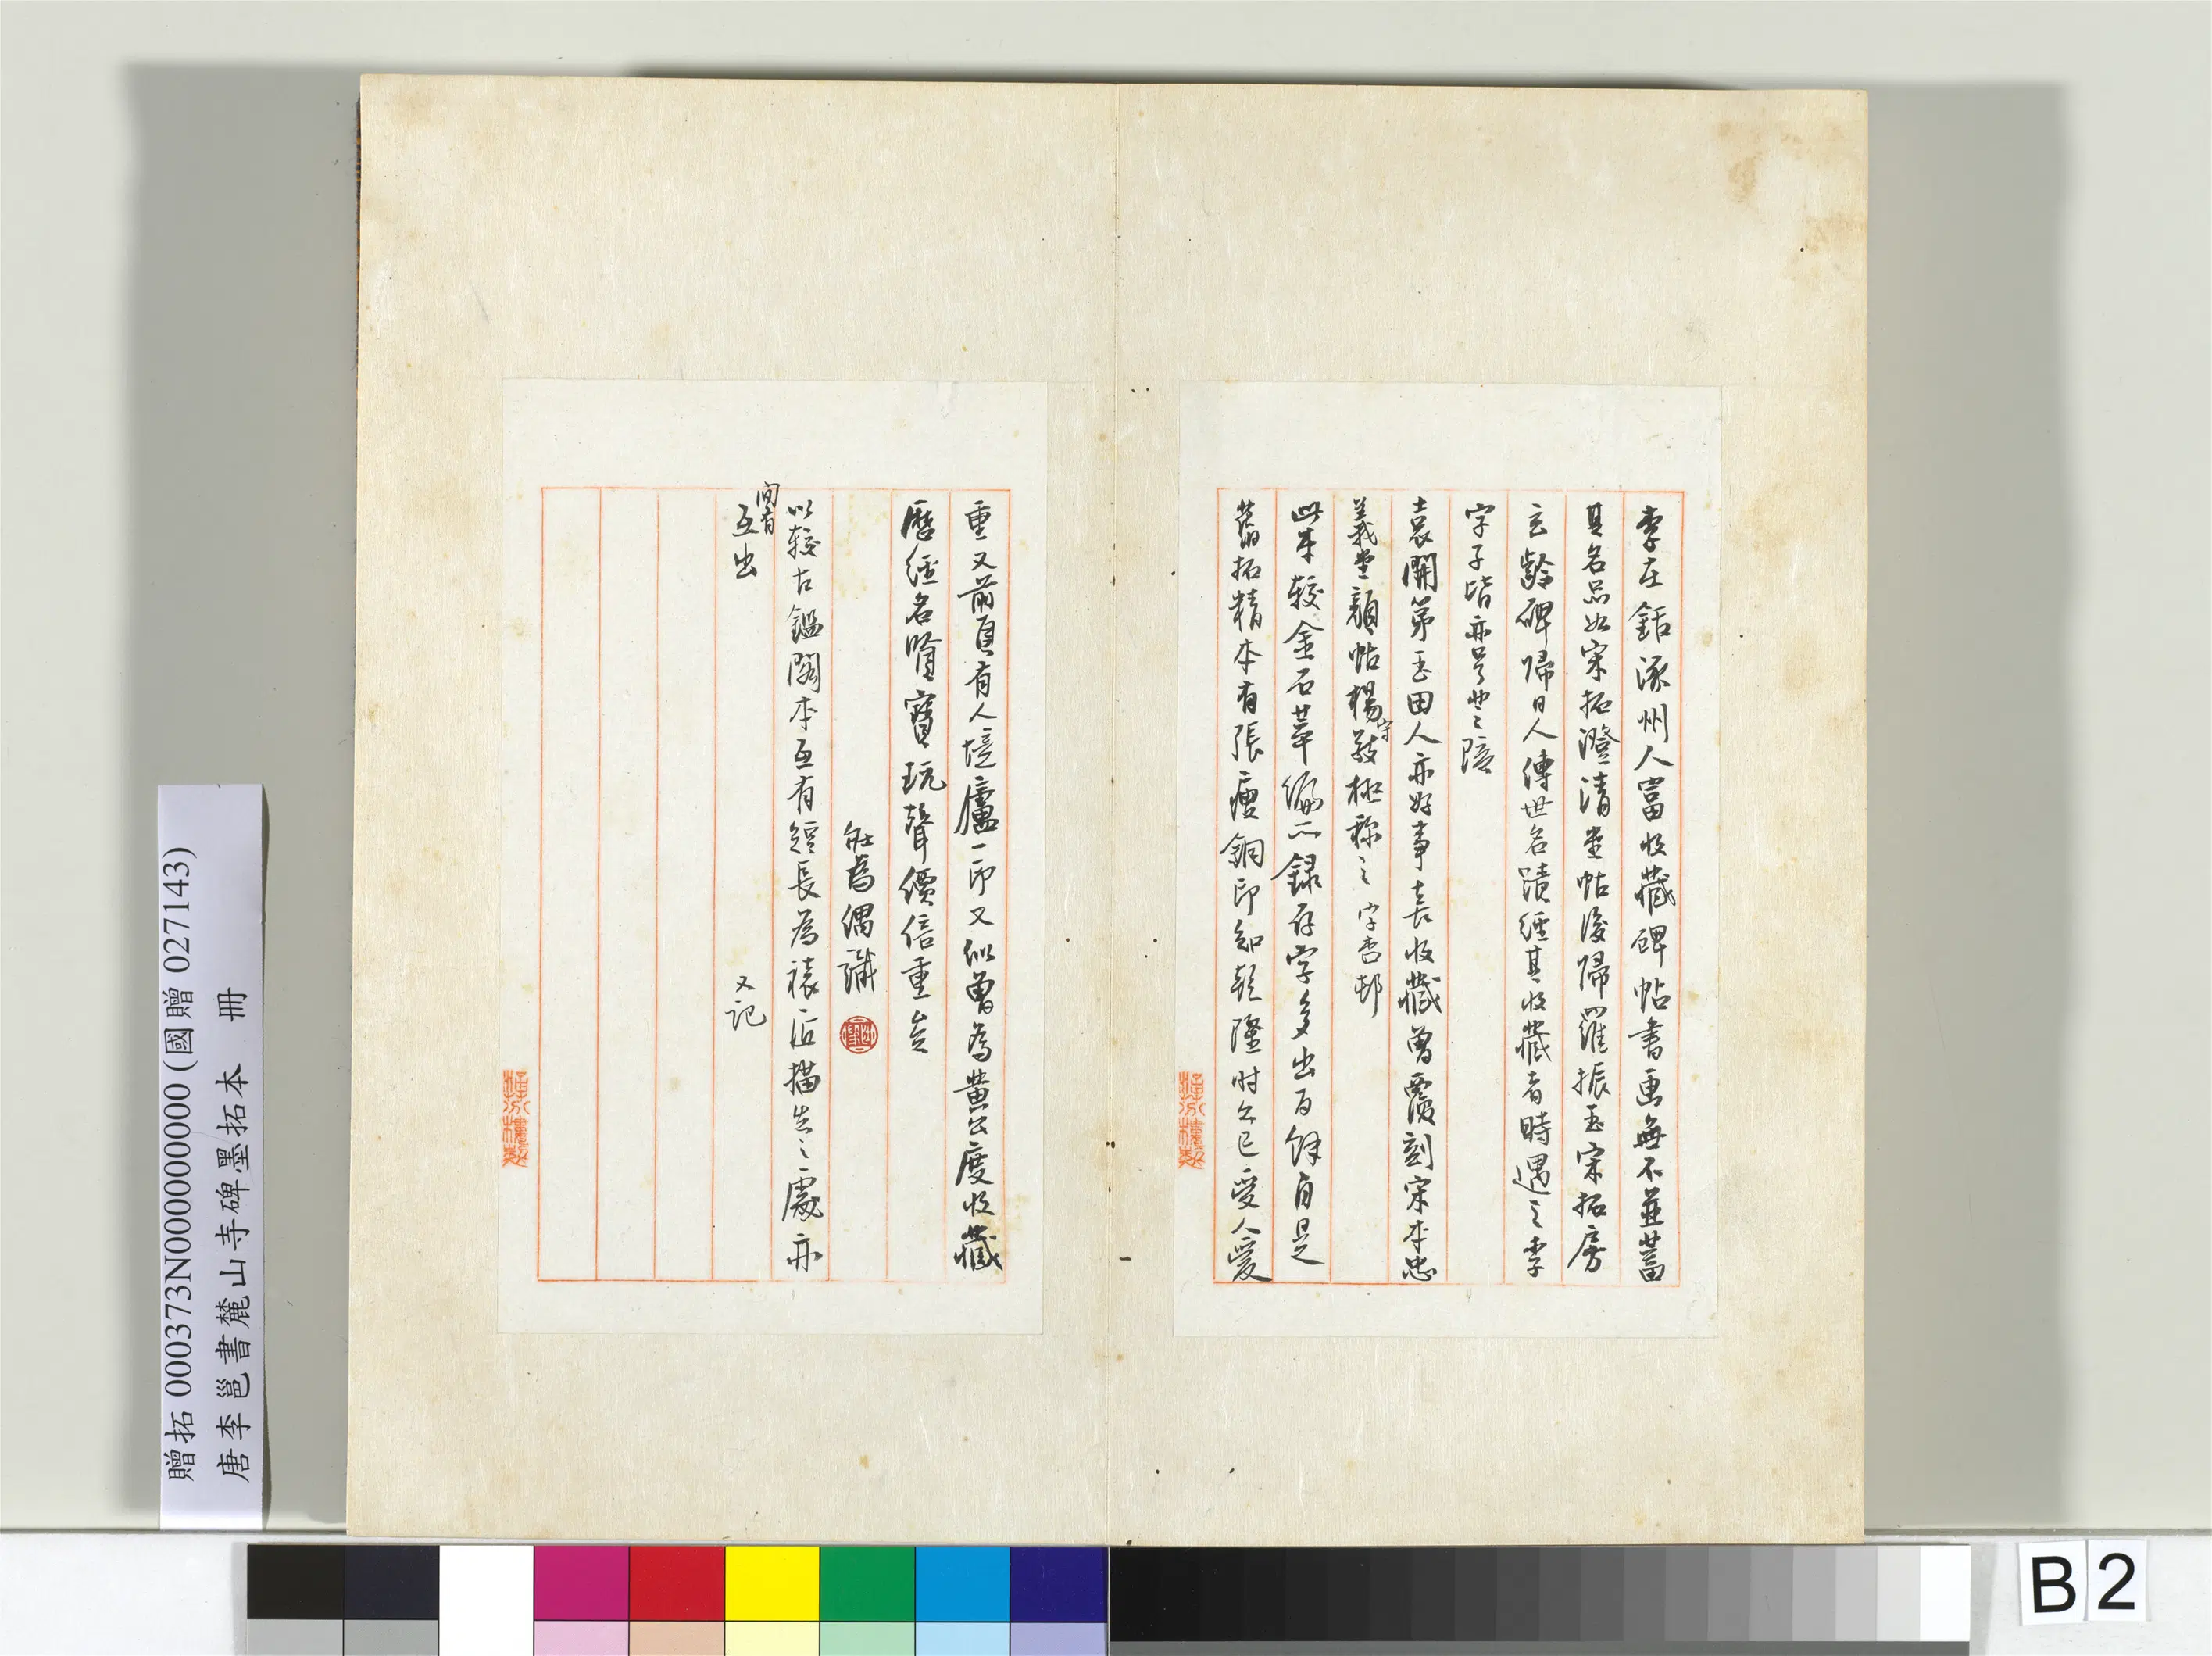 李在銛涿州人富收藏碑帖書画無不並蓄
其名品如宋拓澄清堂帖後帰羅振玉宋拓房
玄齡碑帰日人傳世名蹟經其收藏者時遇之李
字子皆亦号芝陔
袁開第玉田人亦好事喜收藏曾覆刻宋本忠
義堂顏帖楊守敬極称之字杏邨
此本較金石萃編所録存字多出百餘自是
舊拓精本有張廔銅印知乾隆时已受人愛
重又前頁有人境廬一印又似曾為黃公度收藏
歷經名賢寶玩聲價信重矣
壯為偶識
以較古鑑閣本互有短長為裱匠描失之處亦
間有互出
又記
贈拓 000373N000000000 (國贈 027143)
唐李邕書麓山寺碑墨拓本 冊
B 2